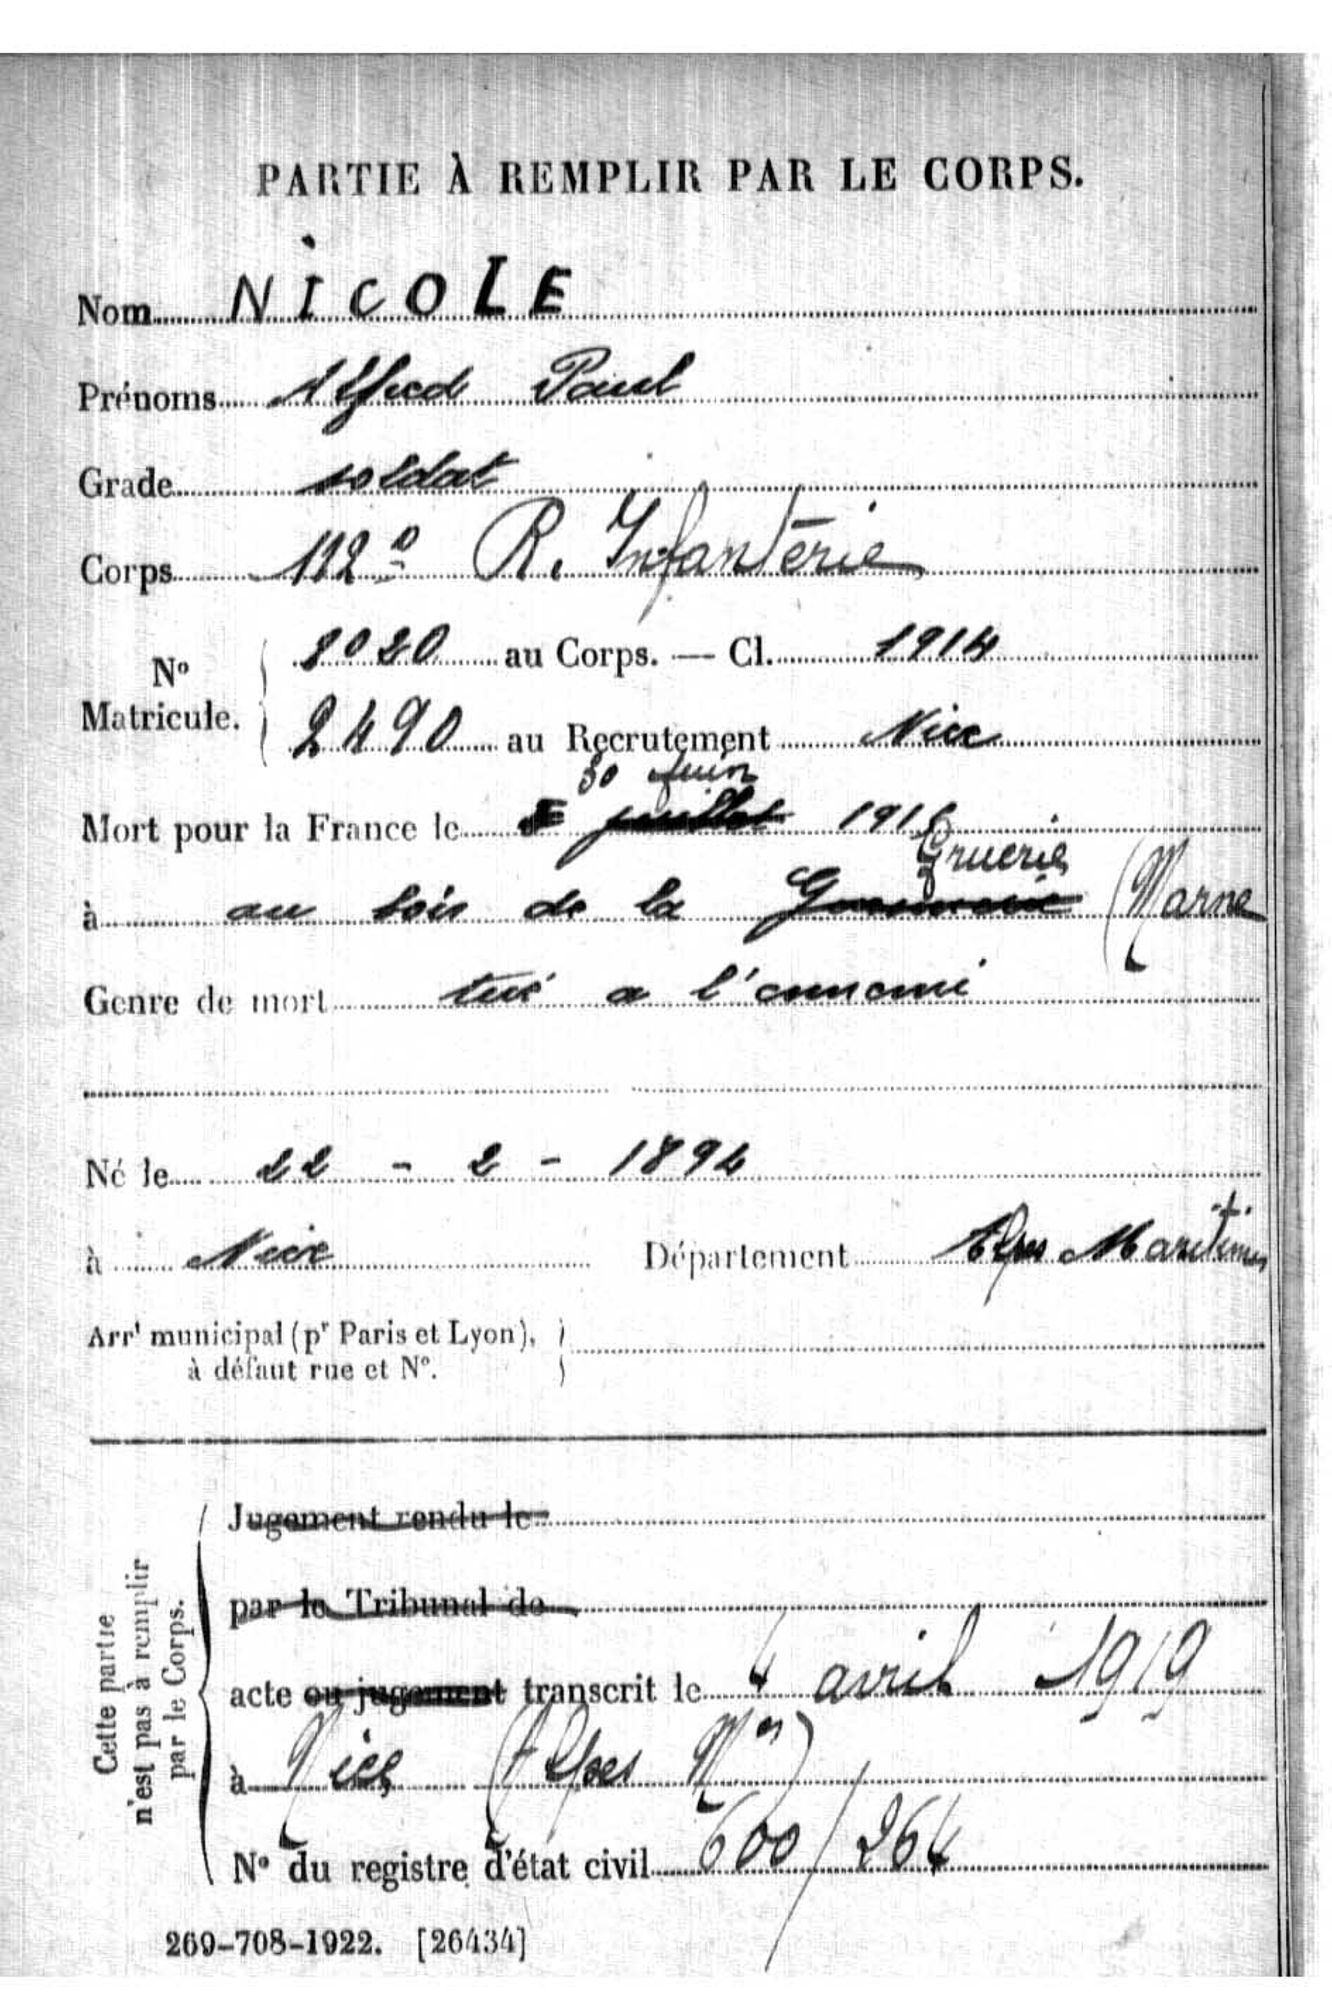 PARTIE À REMPLIR PAR LE CORPS.
Nom NICOLE
Prénoms Alfred Paul
Grade soldat
Corps 112e R. Infanterie
No
Matricule.
8020 au Corps. — Cl. 1914
2490 au Recrutement Nice
30 Juin
Mort pour la France le juillet 191
Gruerie
à au bois de la (Marne
Genre de mort tué a l'ennemi
Né le 22 - 2 - 1894
à Nice Département Alpes Maritimes
Arrt municipal (pr Paris et Lyon),
à défaut rue et No.
Cette partie
n'est pas à remplir
par le Corps.
Jugement rendu le
par le Tribunal de
acte ou jugement transcrit le 4 avril 1919
à Nice (Alpes Mes)
No du registre d'état civil 600/264
269-708-1922. [26434]